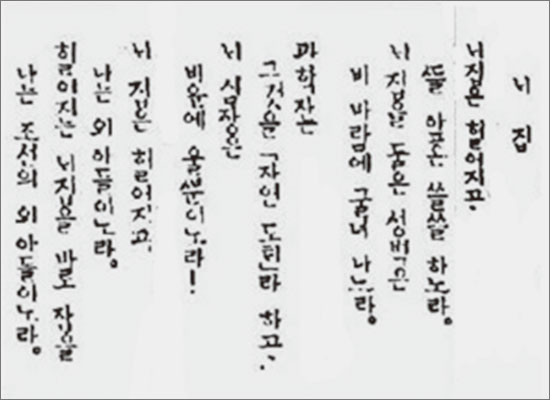 니 집
니집은 헐어지고.
쓸쓸 하노라.
니 집을 둘은 성벽은
비 바람에 굴너
과학자는
그것을 「자연 도태」라 하고,
니 심장은
비운에 울뿐이노라!
니 집은 헐어지고
나는 외아들이노라.
헐어지는 니집을 바로 잡을
나는 조선의 외아들이노라.